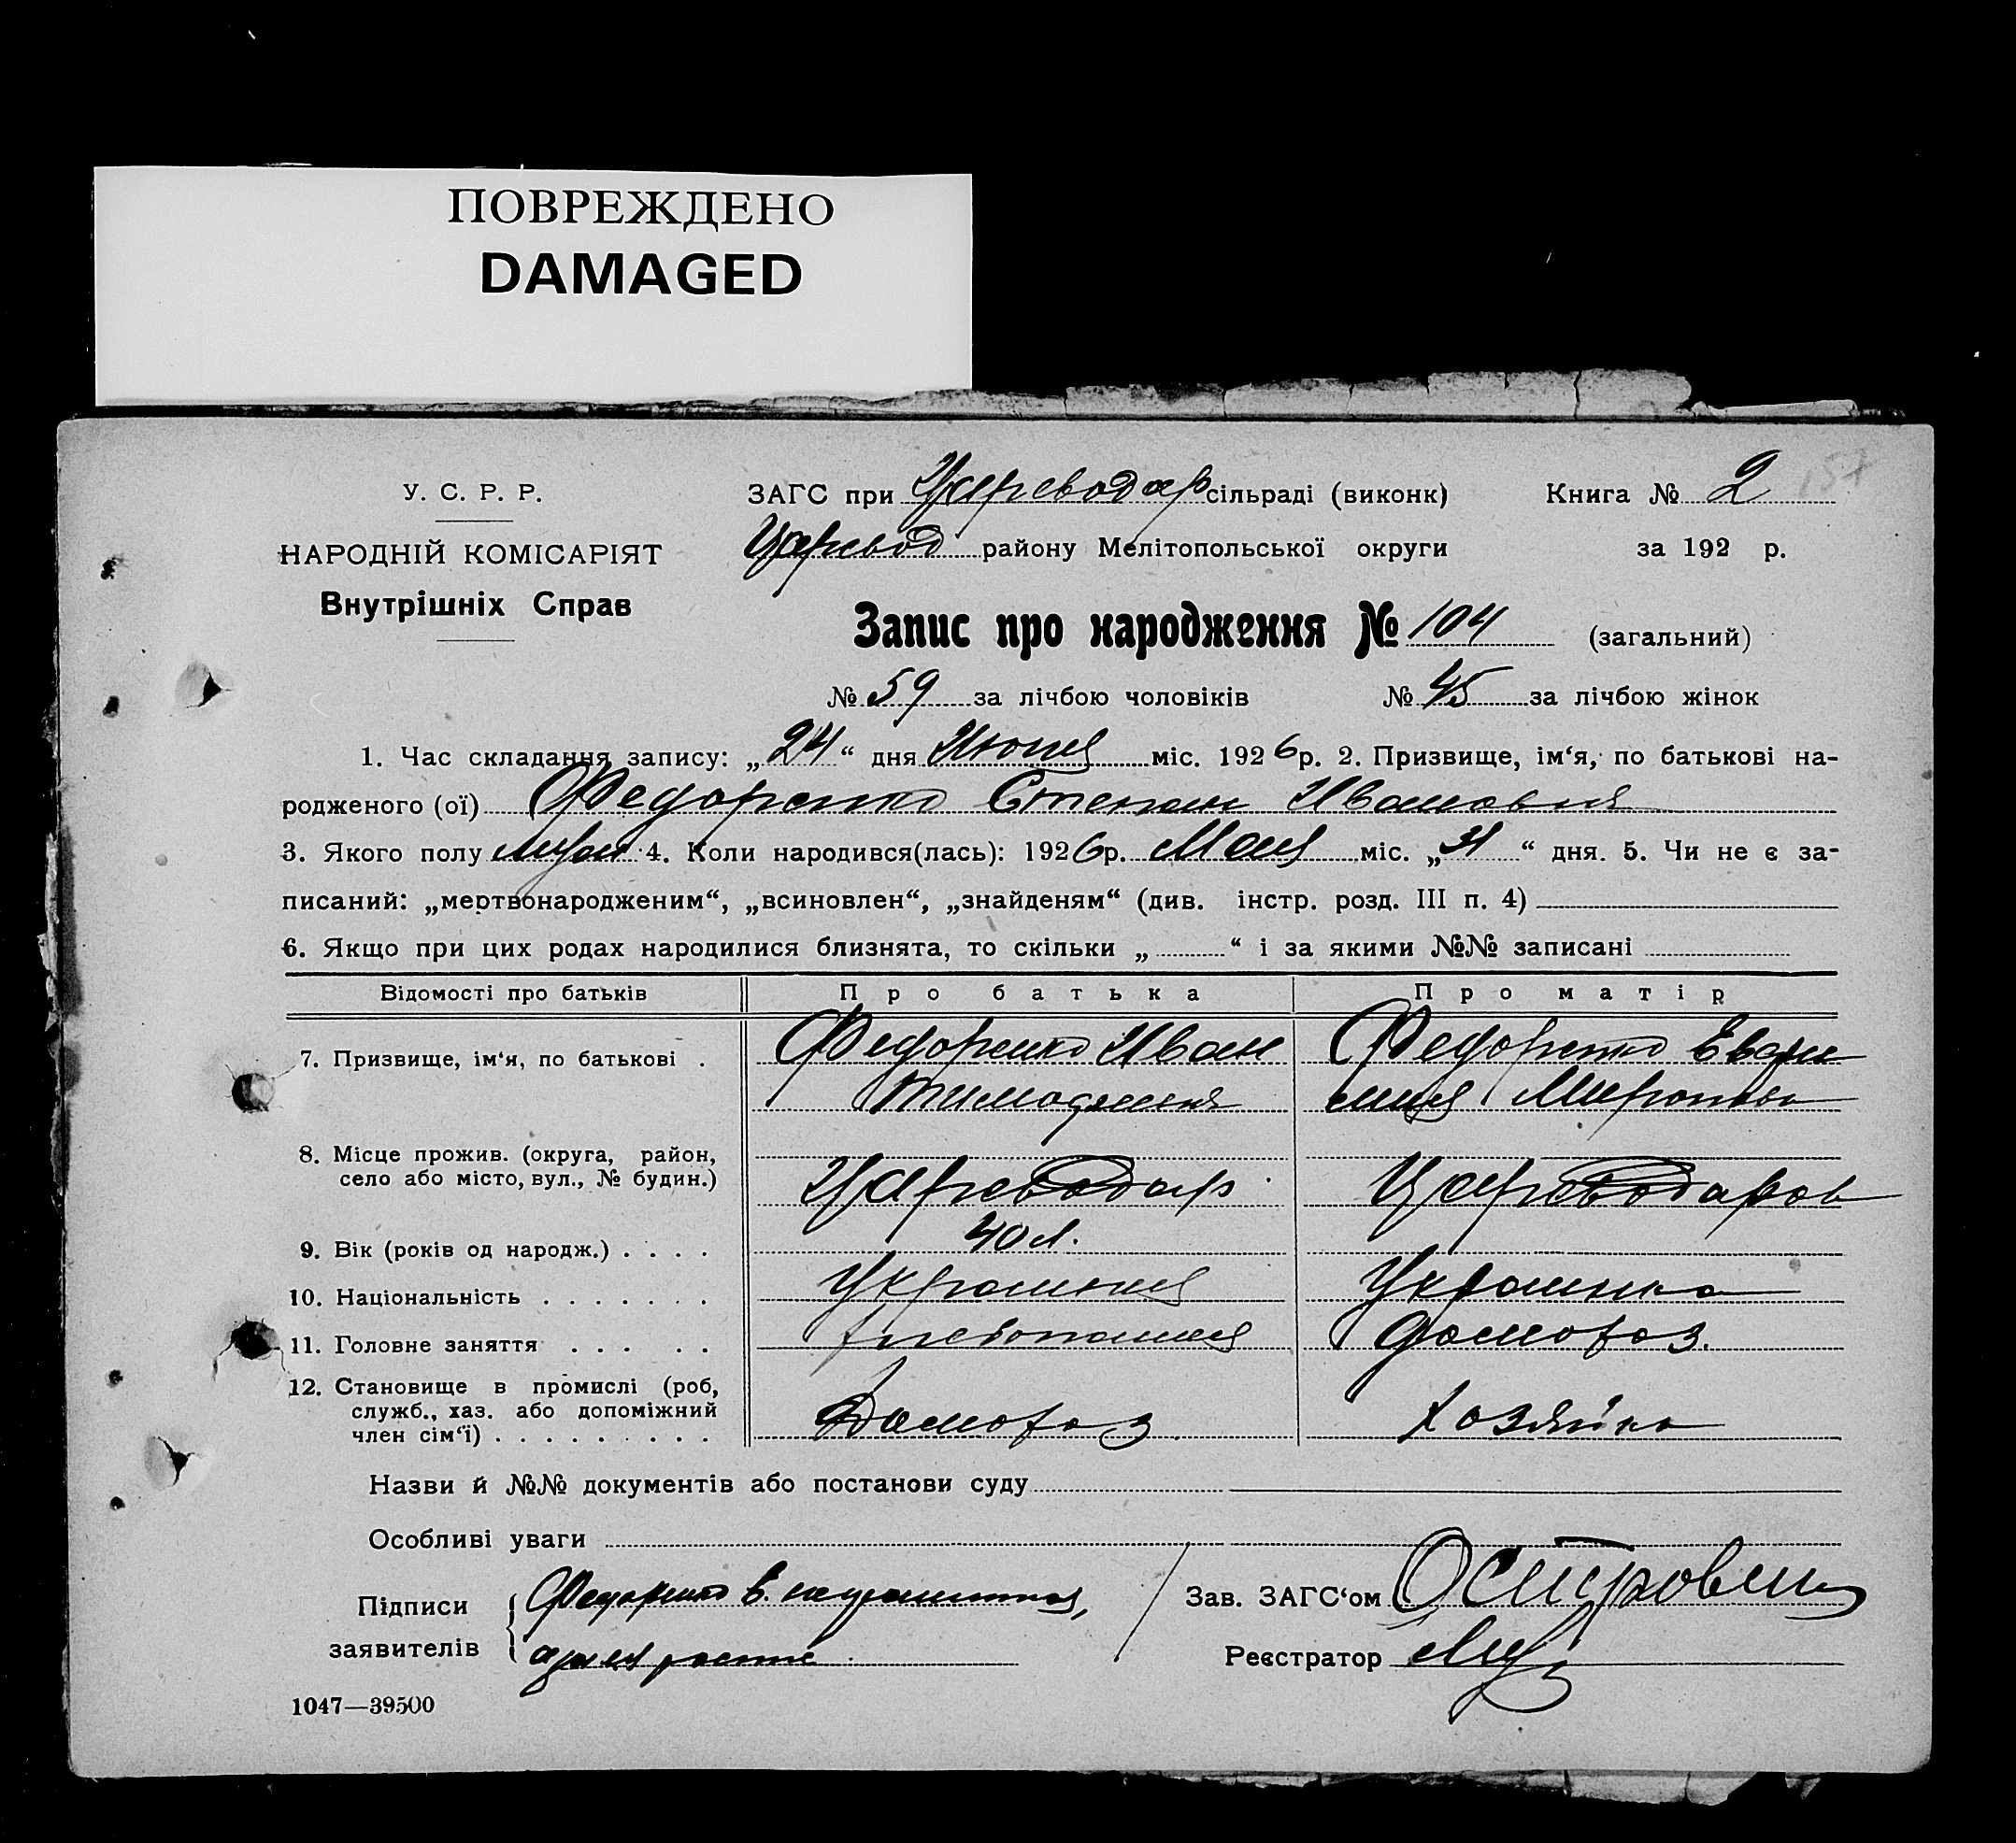 ПОВРЕЖДЕНО
DAMAGED
У. С. Р. Р. ЗАГС при Цареводар сільраді (виконк) Книга № 2 157
НАРОДНІЙ КОМІСАРІЯТ Царевод району Мелітопольської округи за 192 р.
Внутрішніх Справ
Запис про народження № 104 (загальний)
№ 59 за лічбою чоловіків № 45 за лічбою жінок
1. Час складання запису: „24“ дня Июня міс. 1926 р. 2. Призвище, ім‘я, по батькові на-
родженого (ої) Федоренко Степан Иванович
3. Якого полу муж 4. Коли народився(лась): 1926 р. Мая міс. „31“ дня. 5. Чи не є за-
писаний: „мертвонародженим“, „всиновлен“, „знайденям“ (див. інстр. розд. III п. 4)
6. Якщо при цих родах народилися близнята, то скільки „ “ і за якими №№ записані
Відомості про батьків Про батька Про матір
7. Призвище, ім‘я, по батькові . Федоренко Иван Федоренко
Тимофеевич Миронова
8. Місце прожив. (округа, район,
село або місто, вул., № будин.) Цареводар Цареводаров
9. Вік (років од народж.) . . . . 40 л.
10. Національність . . . . . . . Украинец Украинка
11. Головне заняття . . . . . домохоз.
12. Становище в промислі (роб,
служб., хаз. або допоміжний
член сім‘ї) . . . . . . . . . Домохоз Хозяйка
Назви й №№ документів або постанови суду
Особливі уваги
Підписи Федоренко Зав. ЗАГС‘ом
заявителів Реєстратор
1047—39500